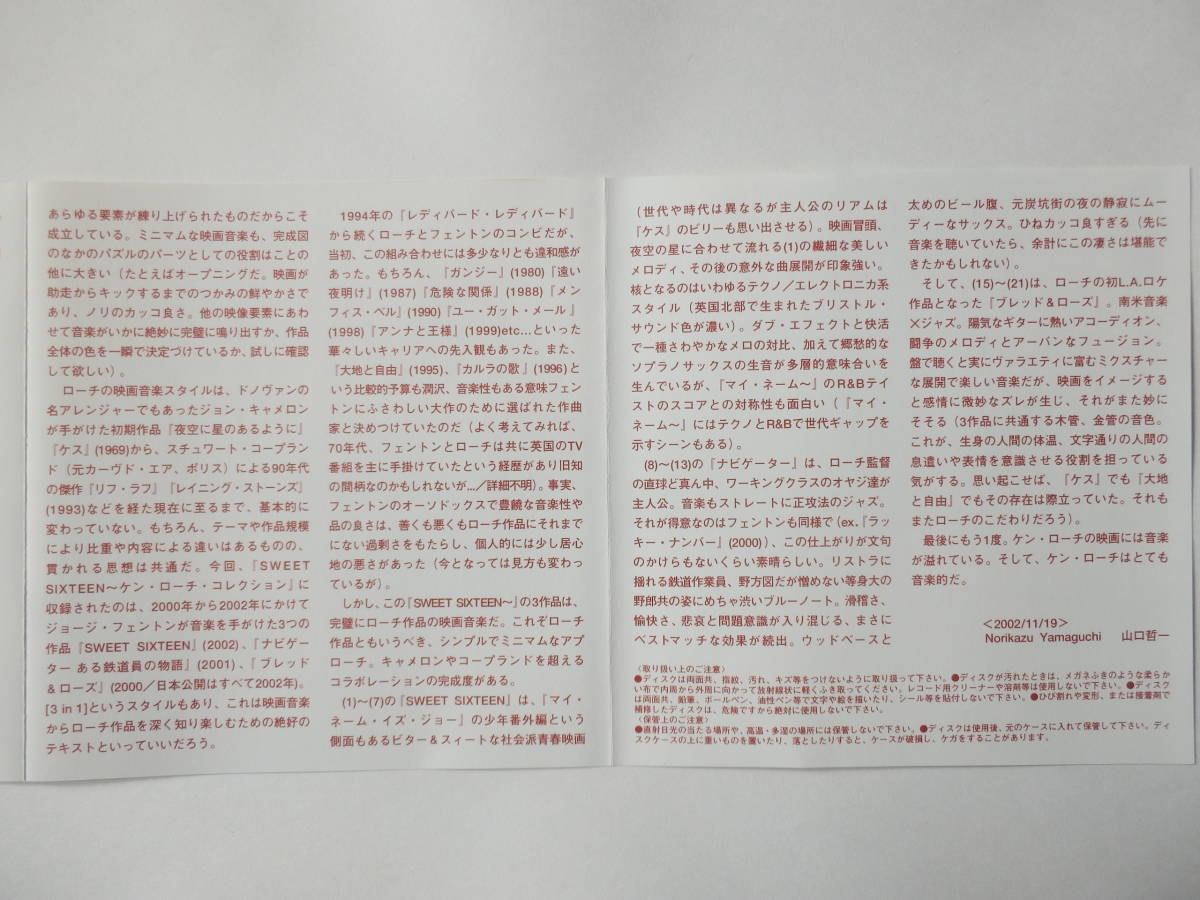 あらゆる要素が練り上げられたものだからこそ
成立している。ミニマムな映画音楽も、完成図
のなかのパズルのパーツとしての役割はことの
他に大きい（たとえばオープニングだ。映画が
助走からキックするまでのつかみの鮮やかさで
あり、ノリのカッコ良さ。他の映像要素にあわ
せて音楽がいかに絶妙に完璧に鳴り出すか、作品
全体の色を一瞬で決定づけているか、試しに確認
して欲しい）。
ローチの映画音楽スタイルは、ドノヴァンの
名アレンジャーでもあったジョン・キャメロン
が手がけた初期作品『夜空に星のあるように』
『ケス』(1969)から、スチュワート・コープラン
ド（元カーヴド・エア、ポリス）による90年代
の傑作『リフ・ラフ』『レイニング・ストーンズ』
(1993)などを経た現在に至るまで、基本的に
変わっていない。もちろん、テーマや作品規模
により比重や内容による違いはあるものの、
貫かれる思想は共通だ。今回、『SWEET
SIXTEEN～ケン・ローチ・コレクション』に
収録されたのは、2000年から2002年にかけて
ジョージ・フェントンが音楽を手がけた3つの
作品『SWEET SIXTEEN』(2002)、『ナビゲー
ター ある鉄道員の物語』(2001)、『ブレッド
&ローズ』(2000／日本公開はすべて2002年)。
[3 in 1]というスタイルもあり、これは映画音楽
からローチ作品を深く知り楽しむための絶好の
テキストといっていいだろう。
1994年の『レディバード・レディバード』
から続くローチとフェントンのコンビだが、
当初、この組み合わせには多少なりとも違和感が
あった。もちろん、『ガンジー』(1980)『遠い
夜明け』(1987)『危険な関係』(1988)『メン
フィス・ベル』(1990)『ユー・ガット・メール』
(1998)『アンナと王様』(1999)etc…といった
華々しいキャリアへの先入観もあった。また、
『大地と自由』(1995)、『カルラの歌』(1996)と
いう比較的予算も潤沢、音楽性もある意味フェン
トンにふさわしい大作のために選ばれた作曲
家と決めつけていたのだ（よく考えてみれば、
70年代、フェントンとローチは共に英国のTV
番組を主に手掛けていたという経歴があり旧知
の間柄なのかもしれないが.../詳細不明）。事実、
フェントンのオーソドックスで豊饒な音楽性や
品の良さは、善くも悪くもローチ作品にそれまで
にない過剰さをもたらし、個人的には少し居心
地の悪さがあった（今となっては見方も変わっ
ているが）。
しかし、この『SWEET SIXTEEN～』の3作品は、
完璧にローチ作品の映画音楽だ。これぞローチ
作品ともいうべき、シンプルでミニマムなアプ
ローチ。キャメロンやコープランドを超える
コラボレーションの完成度がある。
(1)～(7)の『SWEET SIXTEEN』は、『マイ・
ネーム・イズ・ジョー』の少年番外編という
側面もあるビター＆スィートな社会派青春映画
（世代や時代は異なるが主人公のリアムは
『ケス』のビリーも思い出させる）。映画冒頭、
夜空の星に合わせて流れる(1)の繊細な美しい
メロディ、その後の意外な曲展開が印象強い。
核となるのはいわゆるテクノ／エレクトロニカ系
スタイル（英国北部で生まれたブリストル・
サウンド色が濃い）。ダブ・エフェクトと快活
で一種さわやかなメロの対比、加えて郷愁的な
ソプラノサックスの生音が多層的意味合いを
生んでいるが、『マイ・ネーム～』のR&Bテイ
ストのスコアとの対称性も面白い（『マイ・
ネーム～』にはテクノとR&Bで世代ギャップを
示すシーンもある）。
(8)～(13)の『ナビゲーター』は、ローチ監督
の直球ど真ん中、ワーキングクラスのオヤジ達が
主人公。音楽もストレートに正攻法のジャズ。
それが得意なのはフェントンも同様で（ex.『ラッ
キー・ナンバー』(2000)）、この仕上がりが文句
のかけらもないくらい素晴らしい。リストラに
揺れる鉄道作業員、野方図だが憎めない等身大の
野郎共の姿にめちゃ渋いブルーノート。滑稽さ、
愉快さ、悲哀と問題意識が入り混じる、まさに
ベストマッチな効果が続出。ウッドベースと
太めのビール腹、元炭坑街の夜の静寂にムー
ディーなサックス。ひねカッコ良すぎる（先に
音楽を聴いていたら、余計にこの凄さは堪能で
きたかもしれない）。
そして、(15)～(21)は、ローチの初L.A.ロケ
作品となった『ブレッド＆ローズ』。南米音楽
×ジャズ。陽気なギターに熱いアコーディオン、
闘争のメロディとアーバンなフュージョン。
盤で聴くと実にヴァラエティに富むミクスチャー
な展開で楽しい音楽だが、映画をイメージする
と感情に微妙なズレが生じ、それがまた妙に
そそる（3作品に共通する木管、金管の音色。
これが、生身の人間の体温、文字通りの人間の
息遣いや表情を意識させる役割を担っている
気がする。思い起こせば、『ケス』でも『大地
と自由』でもその存在は際立っていた。それも
またローチのこだわりだろう）。
最後にもう1度。ケン・ローチの映画には音楽
が溢れている。そして、ケン・ローチはとても
音楽的だ。
＜2002/11/19＞
Norikazu Yamaguchi　山口哲一
〈取り扱い上のご注意〉
●ディスクは両面共、指紋、汚れ、キズ等をつけないように取り扱って下さい。●ディスクが汚れたときは、メガネふきのような柔らか
い布で内周から外周に向かって放射線状に軽くふき取ってください。レコード用クリーナーや溶剤等は使用しないで下さい。●ディスク
は両面共、鉛筆、ボールペン、油性ペン等で文字や絵を描いたり、シール等を貼付しないで下さい。●ひび割れや変形、または接着剤で
補修したディスクは、危険ですから絶対に使用しないで下さい。
〈保管上のご注意〉
●直射日光の当たる場所や、高温・多湿の場所には保管しないで下さい。●ディスクは使用後、元のケースに入れて保管して下さい。ディ
スクケースの上に重いものを置いたり、落としたりすると、ケースが破損し、ケガをすることがあります。